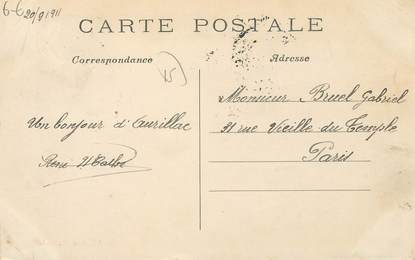 6-6 20/9 1911
CARTE POSTALE
Correspondance
Adresse
15
Un bonjour d'Aurillac
René
Monsieur Bruel Gabriel
31 rue Vieille du Temple
Paris